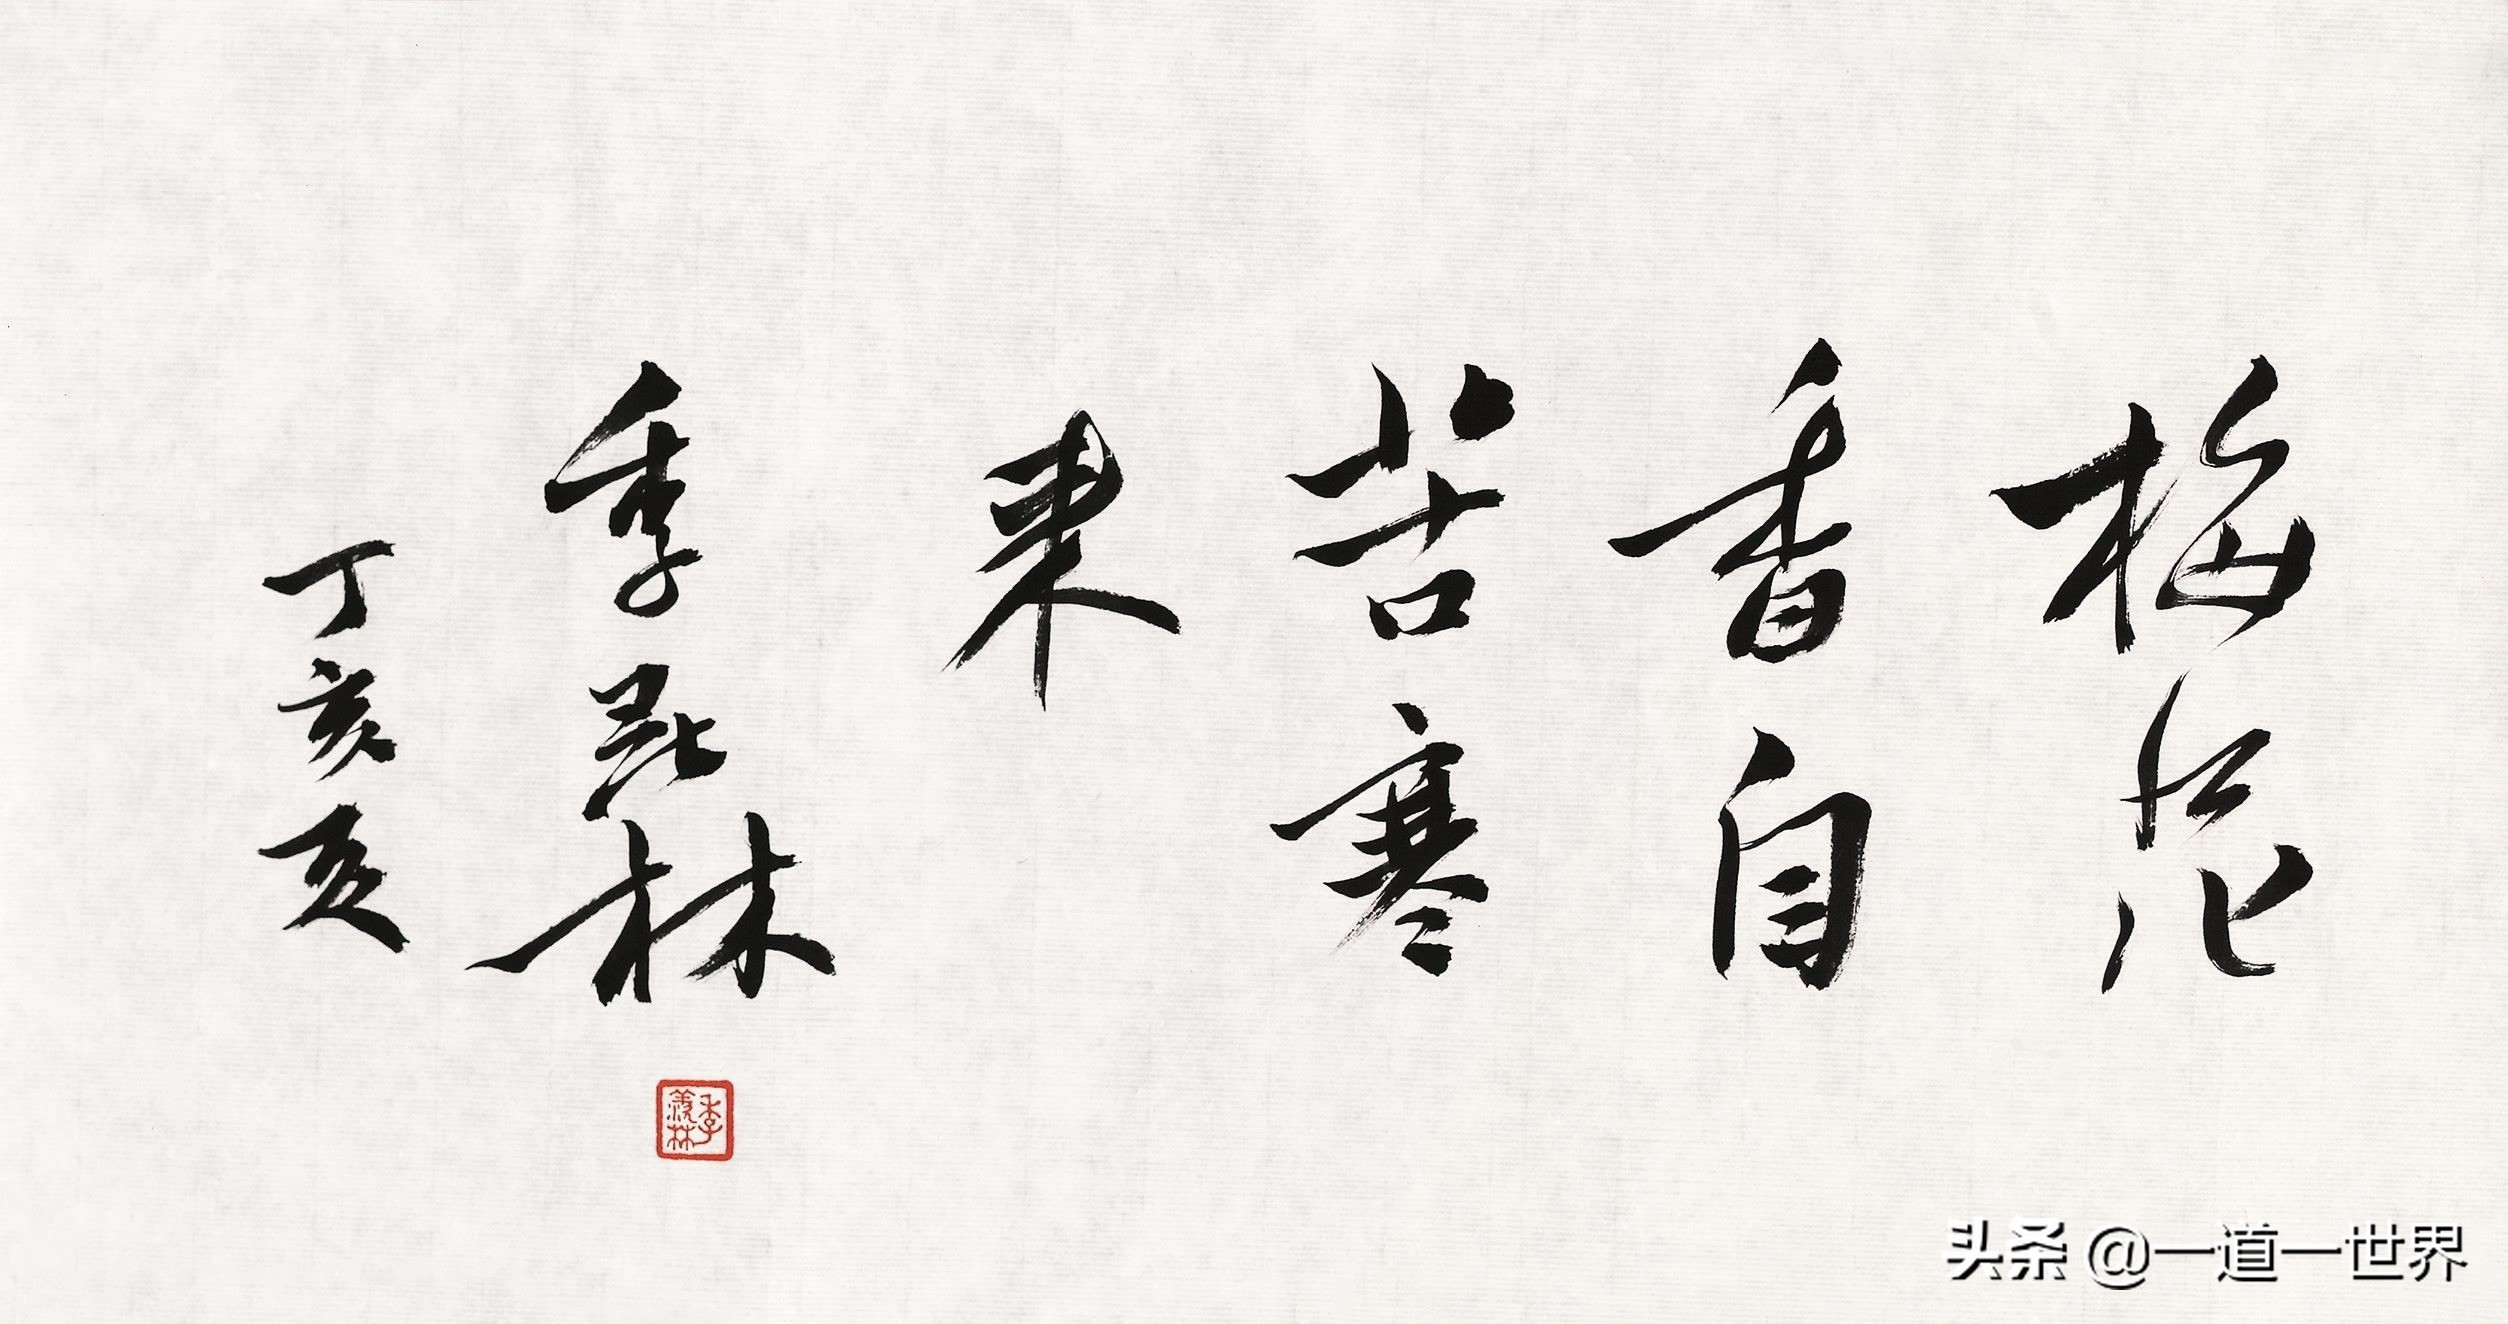 梅花
香自
苦寒
来
季羡林
丁亥夏
季羡林
头条 @一道一世界